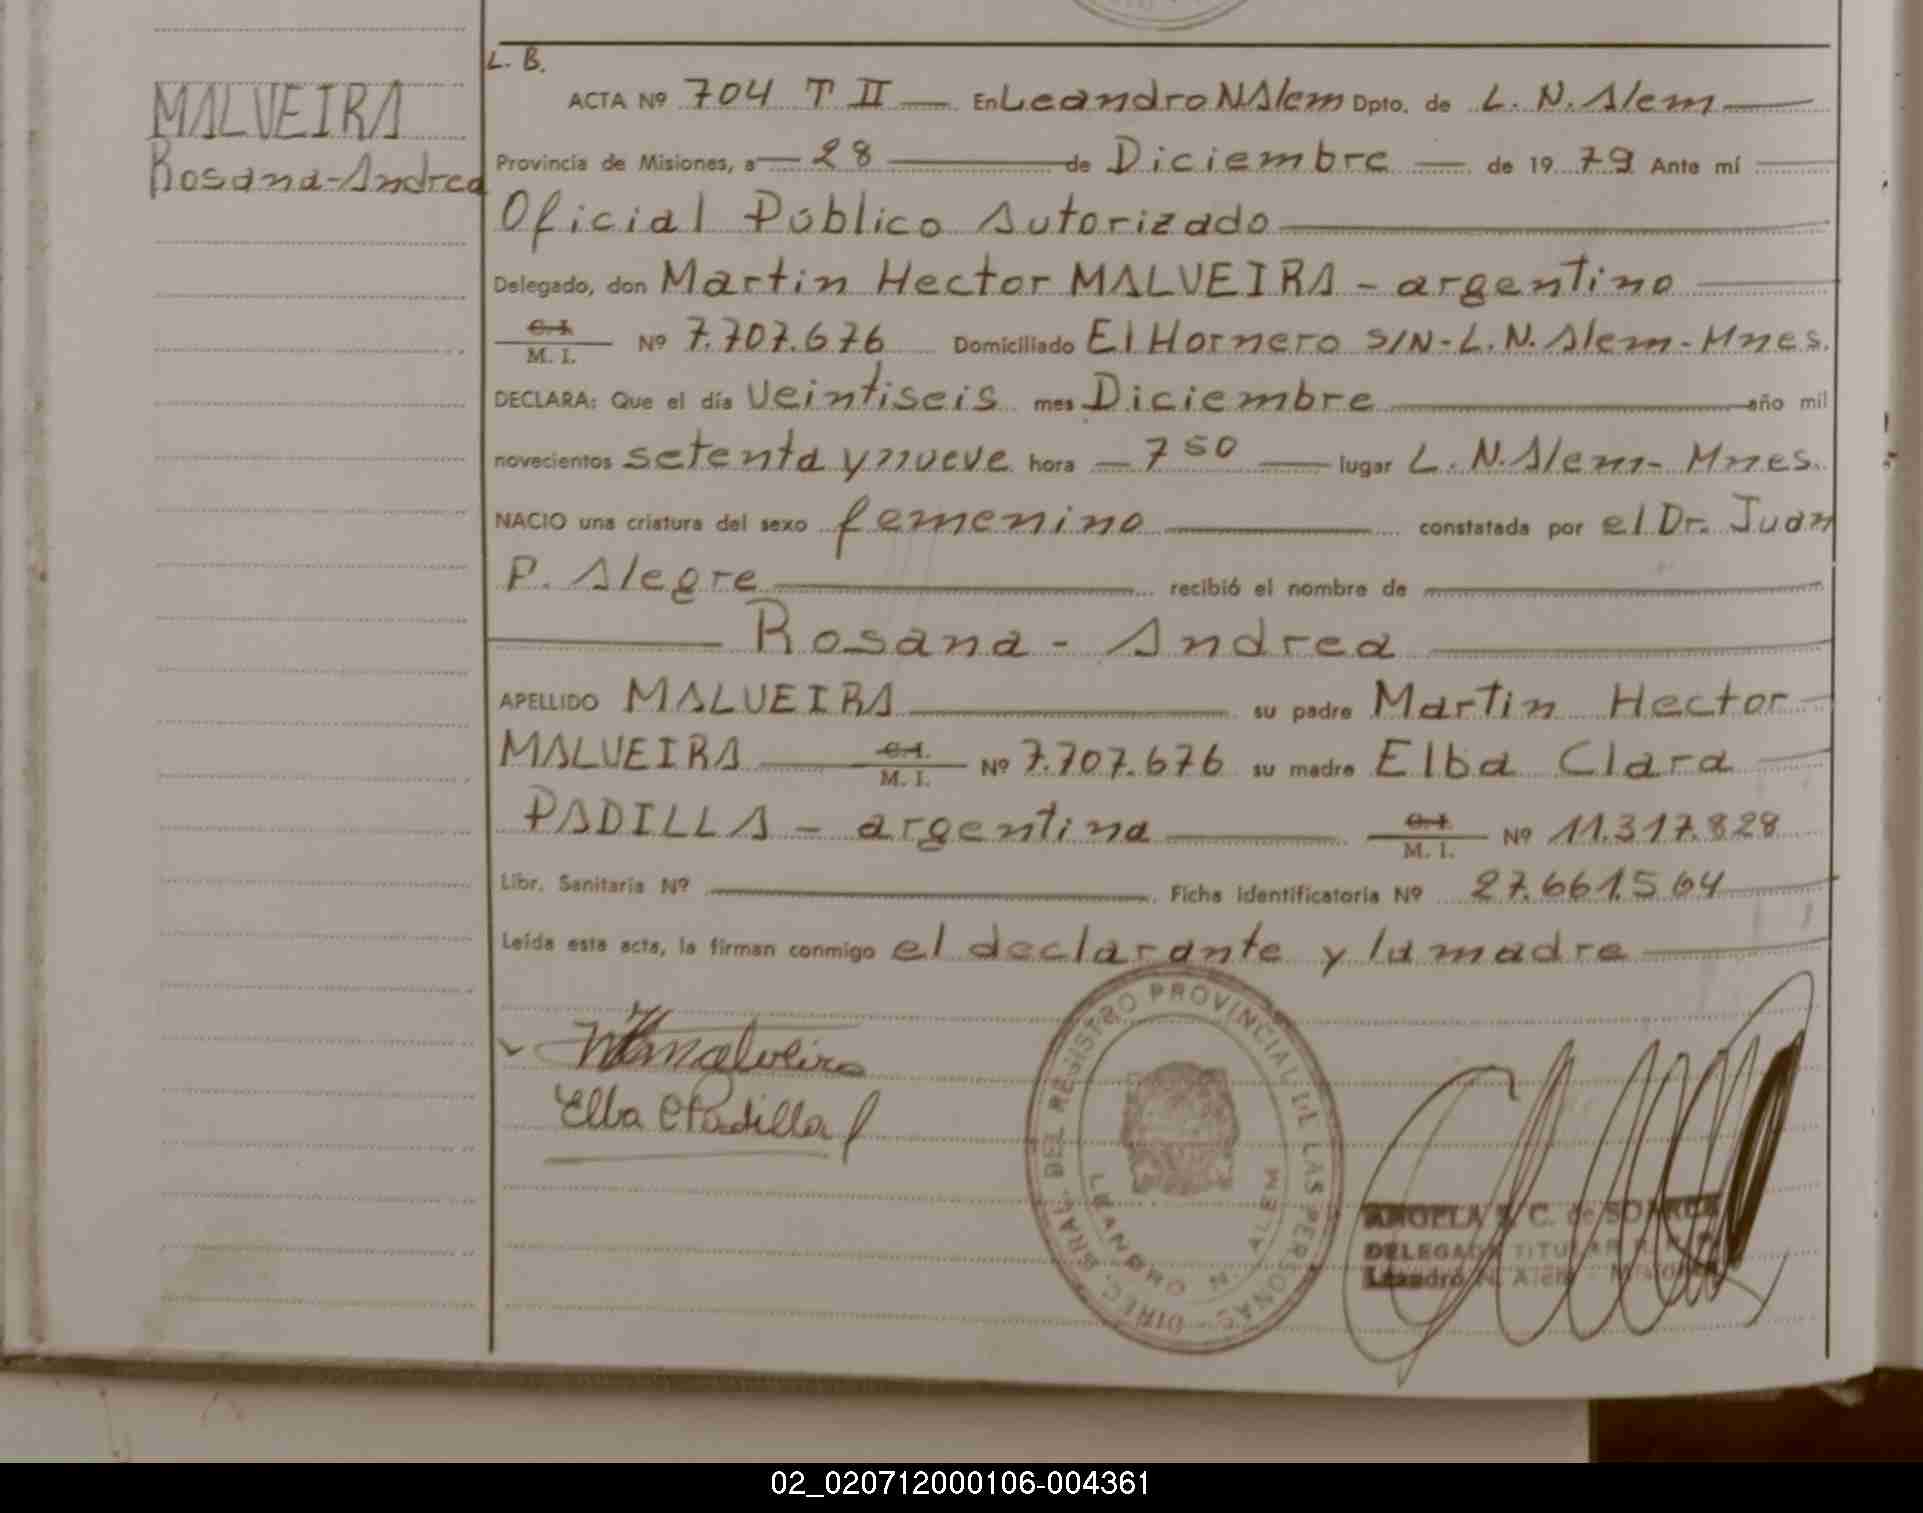 L. B.
MALVEIRA
Rosana-Andrea
ACTA Nº 704 T II En Leandro N Alem Dpto. de L. N. Alem
Provincia de Misiones, a 28 de Diciembre de 1979 Ante mí
Oficial Público Autorizado
Delegado, don Martin Hector MALVEIRA - argentino
C. I.
M. I. Nº 7.707.676 Domiciliado El Hornero S/N-L.N. Alem-Mnes.
DECLARA: Que el día veintiseis mes Diciembre año mil
novecientos setenta y nueve hora 7 50 lugar L. N. Alem- Mnes.
NACIO una criatura del sexo femenino constatada por el Dr. Juan
P. Alegre recibió el nombre de
Rosana - Andrea
APELLIDO MALVEIRA su padre Martin Hector
MALVEIRA C. I. M. I. Nº 7.707.676 su madre Elba Clara
PADILLA - argentina C. I. M. I. Nº 11.317.828
Libr. Sanitaria Nº Ficha identificatoria Nº 27.661.564
Leída esta acta, la firman conmigo el declarante y la madre
Malveira
Elba C Padilla
DIREC. GRAL. DEL REGISTRO PROVINCIAL DE LAS PERSONAS
LEANDRO N. ALEM
ANGELA C. de
DELEGADA TITULAR
Leandro N. Alem - Misiones
02_020712000106-004361